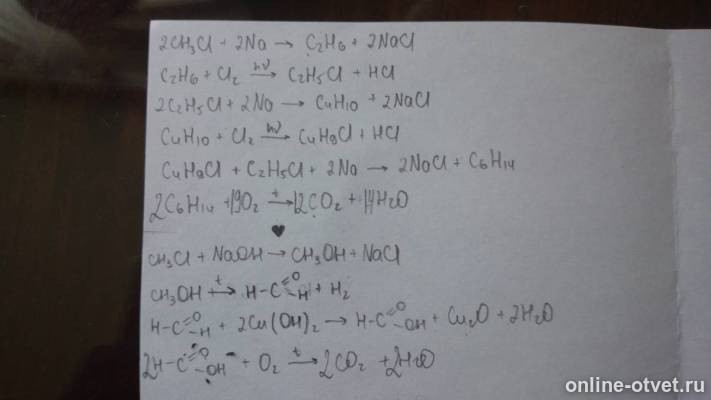 2CH₃Cl + 2Na → C₂H₆ + 2NaCl
C₂H₆ + Cl₂ —hν→ C₂H₅Cl + HCl
2C₂H₅Cl + 2Na → C₄H₁₀ + 2NaCl
C₄H₁₀ + Cl₂ —hν→ C₄H₉Cl + HCl
C₄H₉Cl + C₂H₅Cl + 2Na → 2NaCl + C₆H₁₄
2C₆H₁₄ + 19O₂ —t→ 12CO₂ + 14H₂O
CH₃Cl + NaOH → CH₃OH + NaCl
CH₃OH —t→ H-C(=O)-H + H₂
H-C(=O)-H + 2Cu(OH)₂ → H-C(=O)-OH + Cu₂O + 2H₂O
2H-C(=O)-OH + O₂ —t→ 2CO₂ + 2H₂O
online-otvet.ru